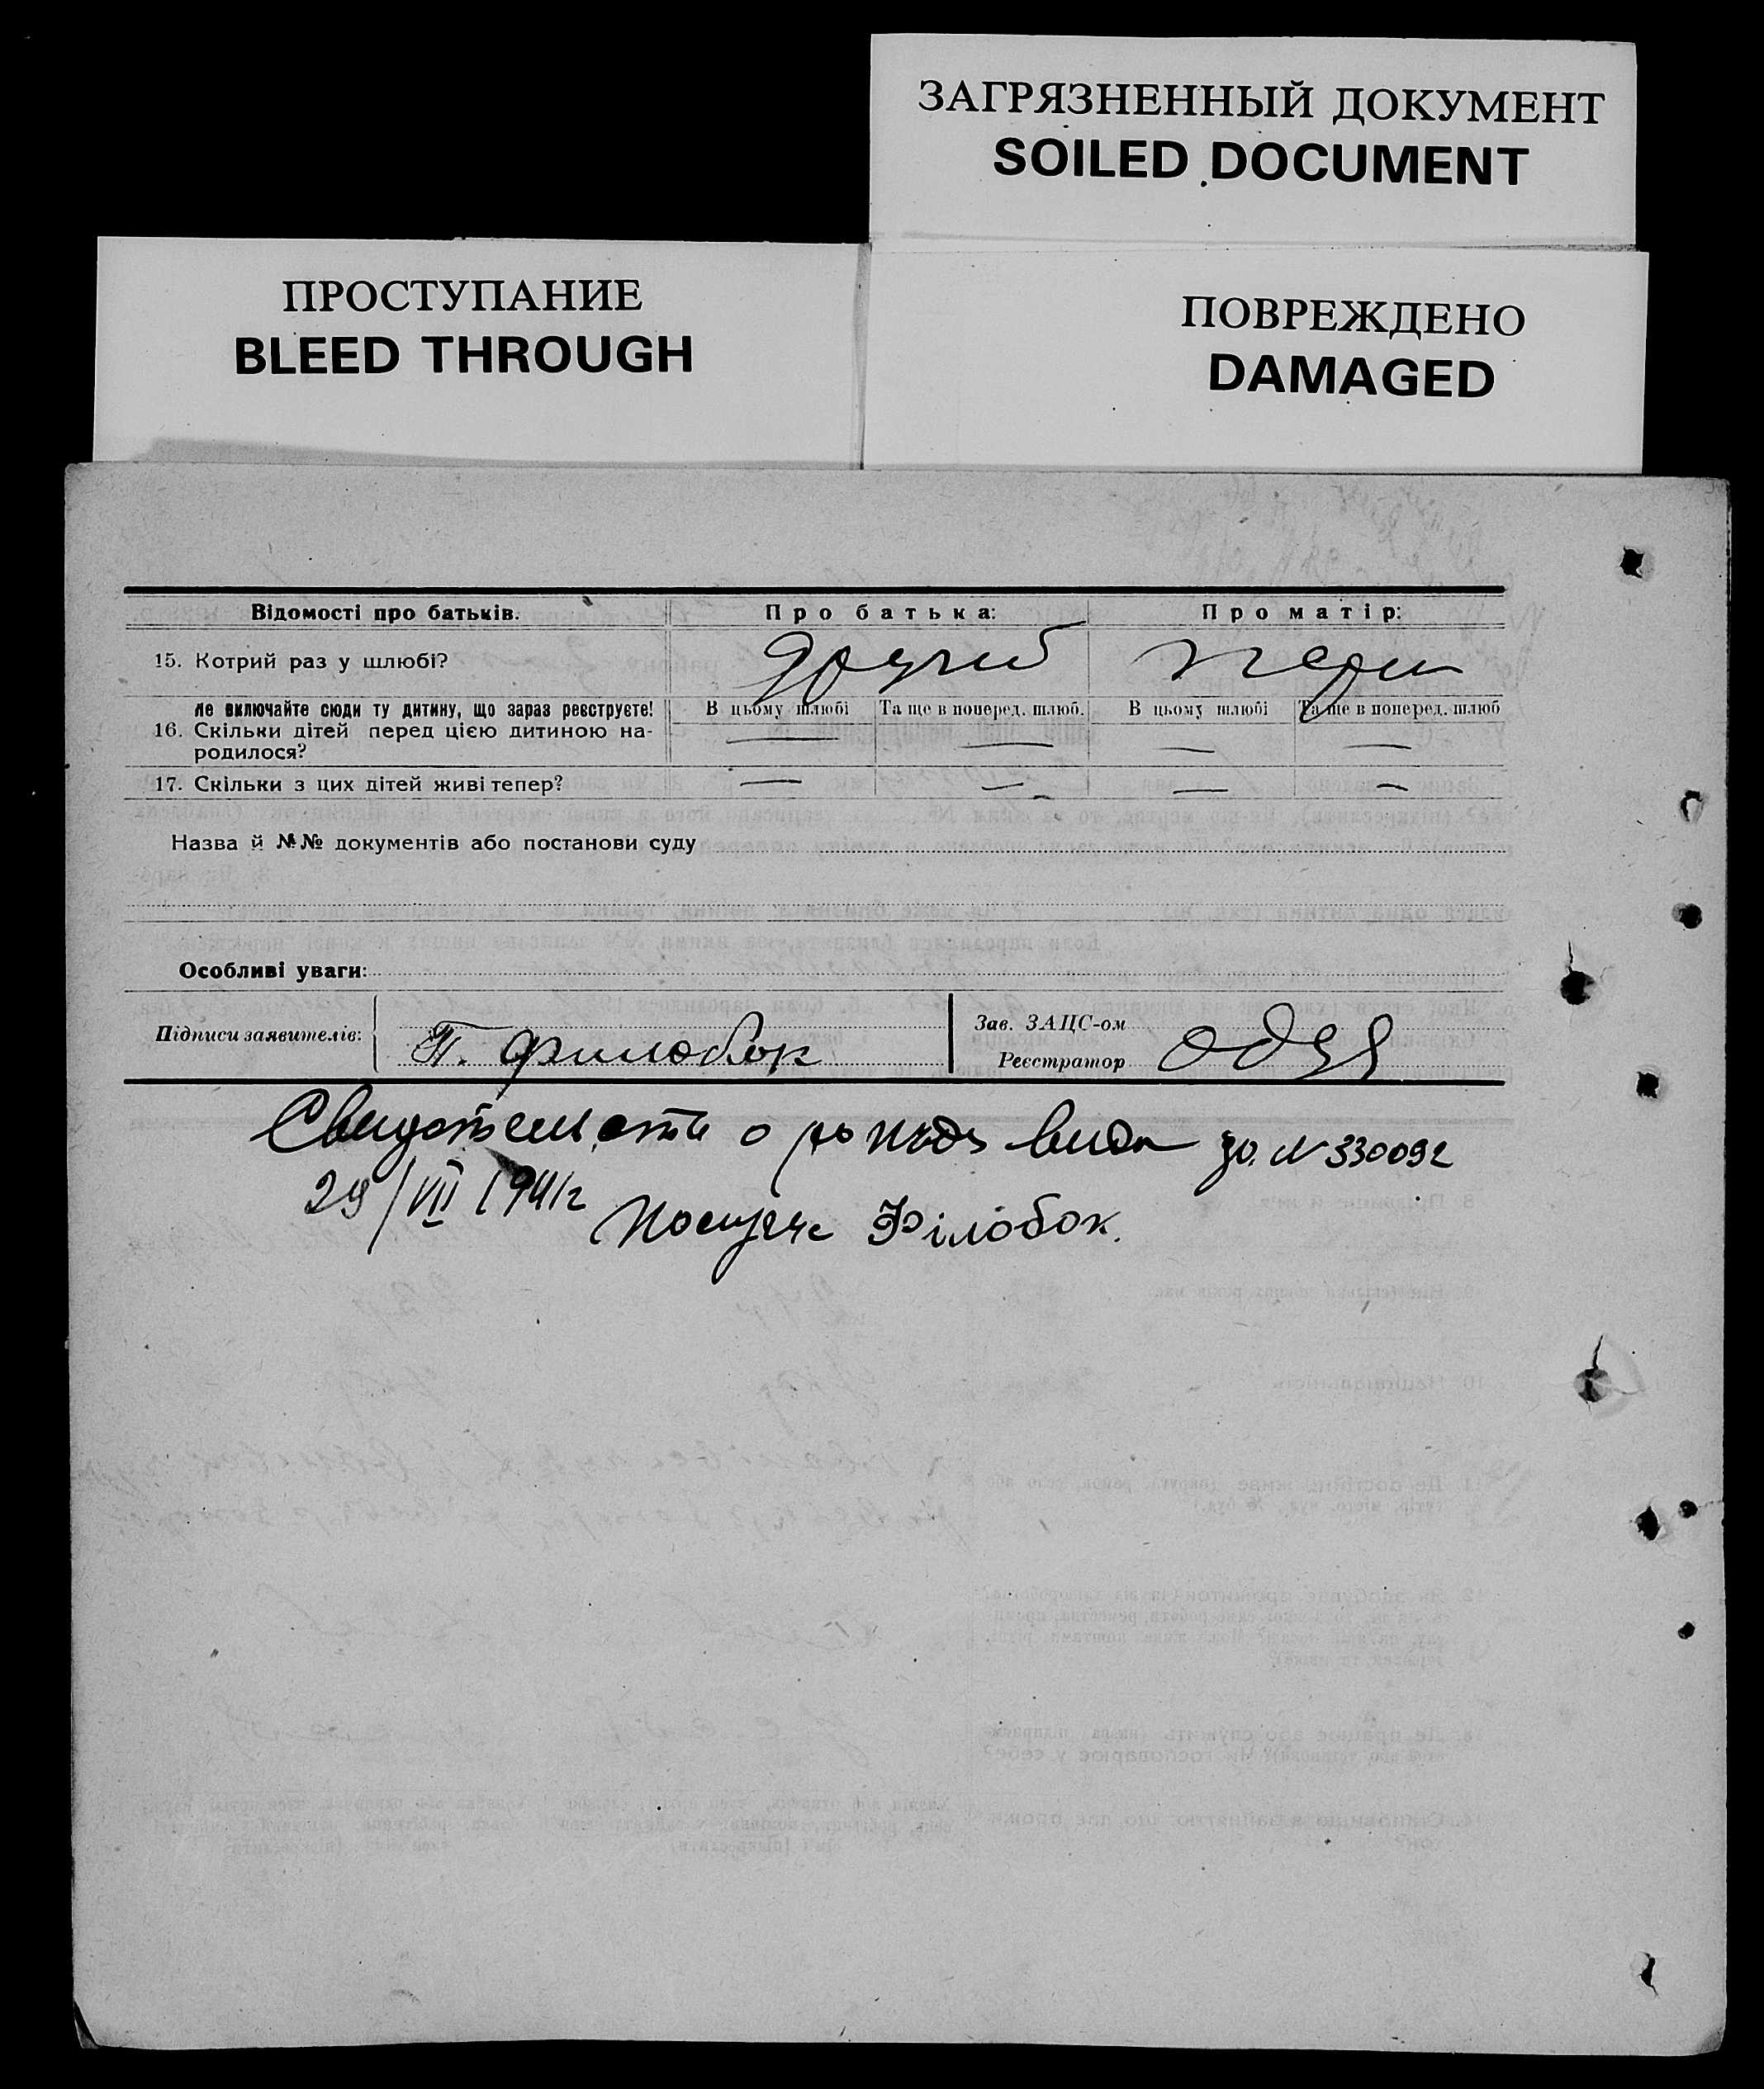 ЗАГРЯЗНЕННЫЙ ДОКУМЕНТ
SOILED DOCUMENT
ПРОСТУПАНИЕ
BLEED THROUGH
ПОВРЕЖДЕНО
DAMAGED
Відомості про батьків. Про батька: Про матір:
15. Котрий раз у шлюбі? другий перш
не включайте сюди ту дитину, що зараз реєструєте! В цьому шлюбі Та ще в поперед. шлюб. В цьому шлюбі Та ще в поперед. шлюб
16. Скільки дітей перед цією дитиною на-
родилося? — — — —
17. Скільки з цих дітей живі тепер? — — — —
Назва й №№ документів або постанови суду
Особливі уваги:
Підписи заявителів: П. Филобок
Зав. ЗАЦС-ом
Реєстратор
о рожд видн за N 330092
29/VII 1941г Філобок.